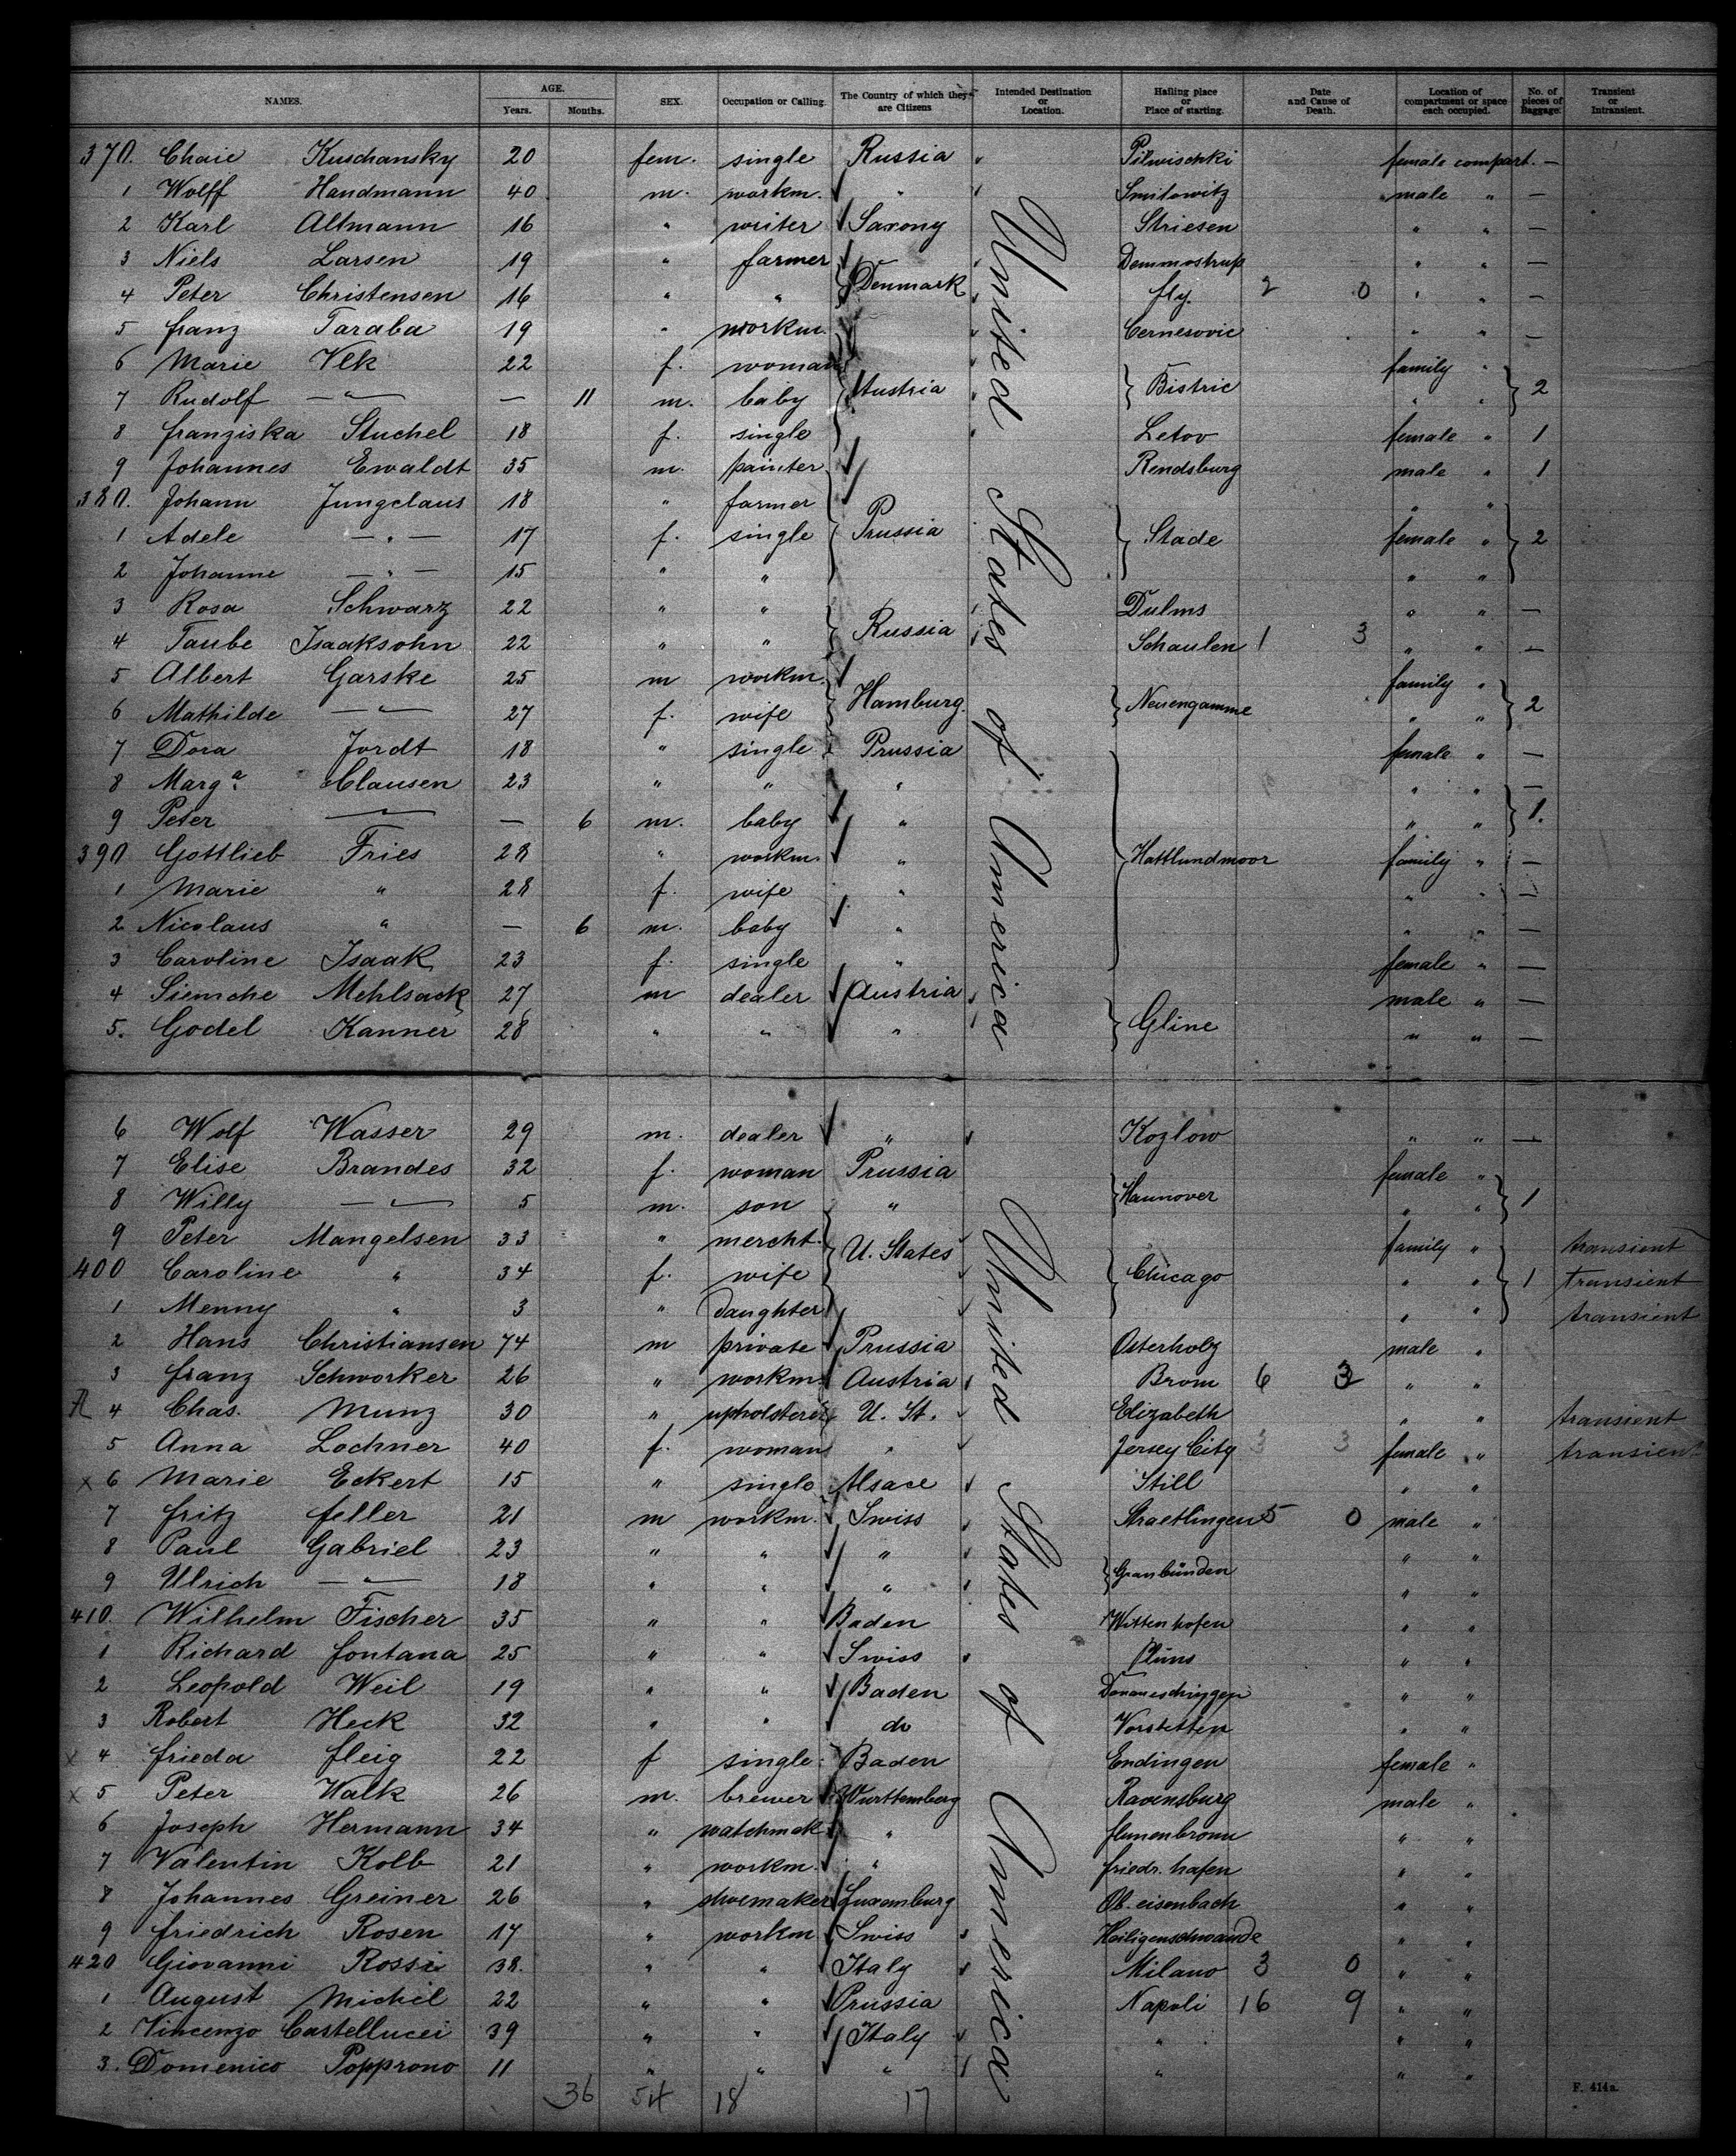 NAMES. AGE. Years. Months. SEX. Occupation or Calling. The Country of which they are Citizens Intended Destination or Location. Hailing place or Place of starting. Date and Cause of Death. Location of compartment or space each occupied. No. of pieces of Baggage. Transient or Intransient.
370. Chaie Kuschansky 20 fem. single Russia Pilwischki female compart. —
1 Wolff Handmann 40 m. workm. " Smilowitz male " —
2 Karl Altmann 16 " writer Saxony Striesen " " —
3 Niels Larsen 19 " farmer Demmostrup " " —
4 Peter Christensen 16 " " Denmark fly. 2 0 " " —
5 franz Taraba 19 " workm. Cernesovic " " —
6 Marie Vlk 22 f. woman family "
7 Rudolf — " — — 11 m. baby Austria Bistric " " 2
8 franziska Stuchel 18 f. single Letov female " 1
9 Johannes Ewaldt 35 m. painter Rendsburg male " 1
380. Johann Jungclaus 18 " farmer " "
1 Adele — " — 17 f. single Prussia Stade female " 2
2 Johanne — " — 15 " " " "
3 Rosa Schwarz 22 " " Dulms " " —
4 Taube Isaaksohn 22 " " Russia Schaulen 1 3 " " —
5 Albert Garske 25 m workm. family "
6 Mathilde — " — 27 f. wife Hamburg. Neuengamme " " 2
7 Dora Jordt 18 " single Prussia female " —
8 Marg.a Clausen 23 " " " " " —
9 Peter — " — — 6 m. baby " " " 1.
390 Gottlieb Fries 28 " workm. " Hattlundmoor family " —
1 Marie " 28 f. wife " " " —
2 Nicolaus " — 6 m. baby " " " —
3 Caroline Isaak 23 f. single " female " —
4 Siemche Mehlsack 27 m dealer Austria male " —
5. Godel Kanner 28 " " " Gline " " —
United States of America
6 Wolf Wasser 29 m. dealer " Kozlow " " —
7 Elise Brandes 32 f. woman Prussia female "
8 Willy — " — 5 m. son " Hannover " " 1
9 Peter Mangelsen 33 " mercht. U. States family " transient
400 Caroline " 34 f. wife Chicago " " 1 transient
1 Menny " 3 " daughter " " transient
2 Hans Christiansen 74 m private Prussia Osterholz male "
3 franz Schworker 26 " workm. Austria Brom 6 3 " "
4 Chas. Munz 30 " upholsterer U. St. Elizabeth " " transient
5 Anna Lochner 40 f. woman " Jersey City 3 3 female " transient
x 6 Marie Eckert 15 " single Alsace Still " "
7 fritz feller 21 m workm. Swiss Straetlingen 5 0 male "
8 Paul Gabriel 23 " " " " "
9 Ulrich — " — 18 " " " Graubünden " "
410. Wilhelm Fischer 35 " " Baden Wittenhofen " "
1 Richard fontana 25 " " Swiss fluns " "
2 Leopold Weil 19 " " Baden Donaueschingen " "
3 Robert Heck 32 " " do Vorstetten " "
x 4 frieda fleig 22 f single Baden Endingen female "
x 5 Peter Walk 26 m. brewer Württemberg Ravensburg male "
6 Joseph Hermann 34 " watchmak. " " "
7 Valentin Kolb 21 " workm. " friedr. hafen " "
8 Johannes Greiner 26 " shoemaker Luxemburg Ob. eisenbach " "
9 friedrich Rosen 17 " workm Swiss Heiligenschwande " "
420 Giovanni Rossi 38. " " Italy Milano 3 0 " "
1 August Michel 22 " " Prussia Napoli 16 9 " "
2 Vincenzo Castellucci 39 " " Italy " " "
3. Domenico Popprono 11 " " " " " "
United States of America
36 54 18 17
F. 414a.